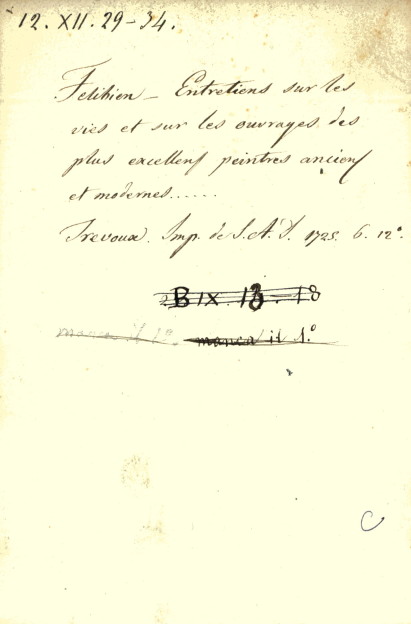 12. XII. 29-34.
Felibien _ Entretiens sur les
vies et sur les ouvrages des
plus excellens peintres anciens
et modernes......
Trevoux. Imp. de S. A. S. 1725. 6. 12°.
B IX. 13. 18
manca il 1° manca il 1.°
C